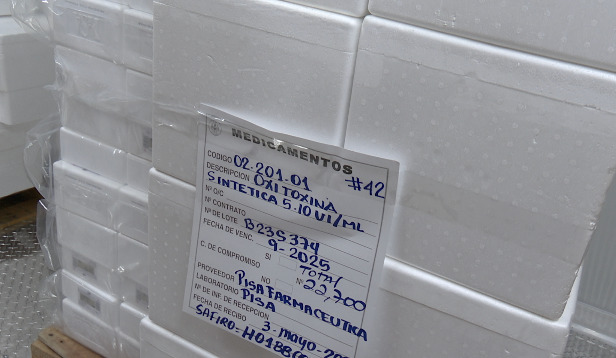 MEDICAMENTOS
CODIGO 02-201-01 #42
DESCRIPCION OXITOXINA
SINTETICA 5-10 VI/ML
Nº O/C
Nº CONTRATO
Nº DE LOTE B23S374
FECHA DE VENC. 9-2025
C. DE COMPROMISO SI NO Nº TOTAL 22,200
PROVEEDOR PISA FARMACEUTICA
LABORATORIO PISA
Nº DE INF DE RECEPCION
FECHA DE RECIBO 3-mayo-
SAFIRO-